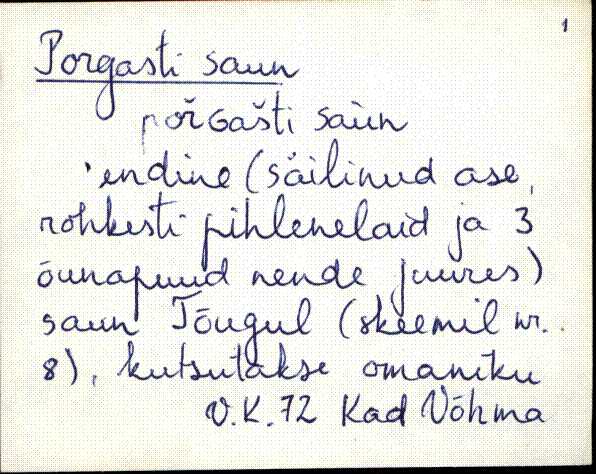 1
Porgasti saun
põrgašti saùn
endine (säilinud ase,
rohkesti pihlenelaid ja 3
õunapuud nende juures)
saun Tõugul (skeemil nr.
8), kutsutakse omaniku
V.K. 72 Kad Võhma